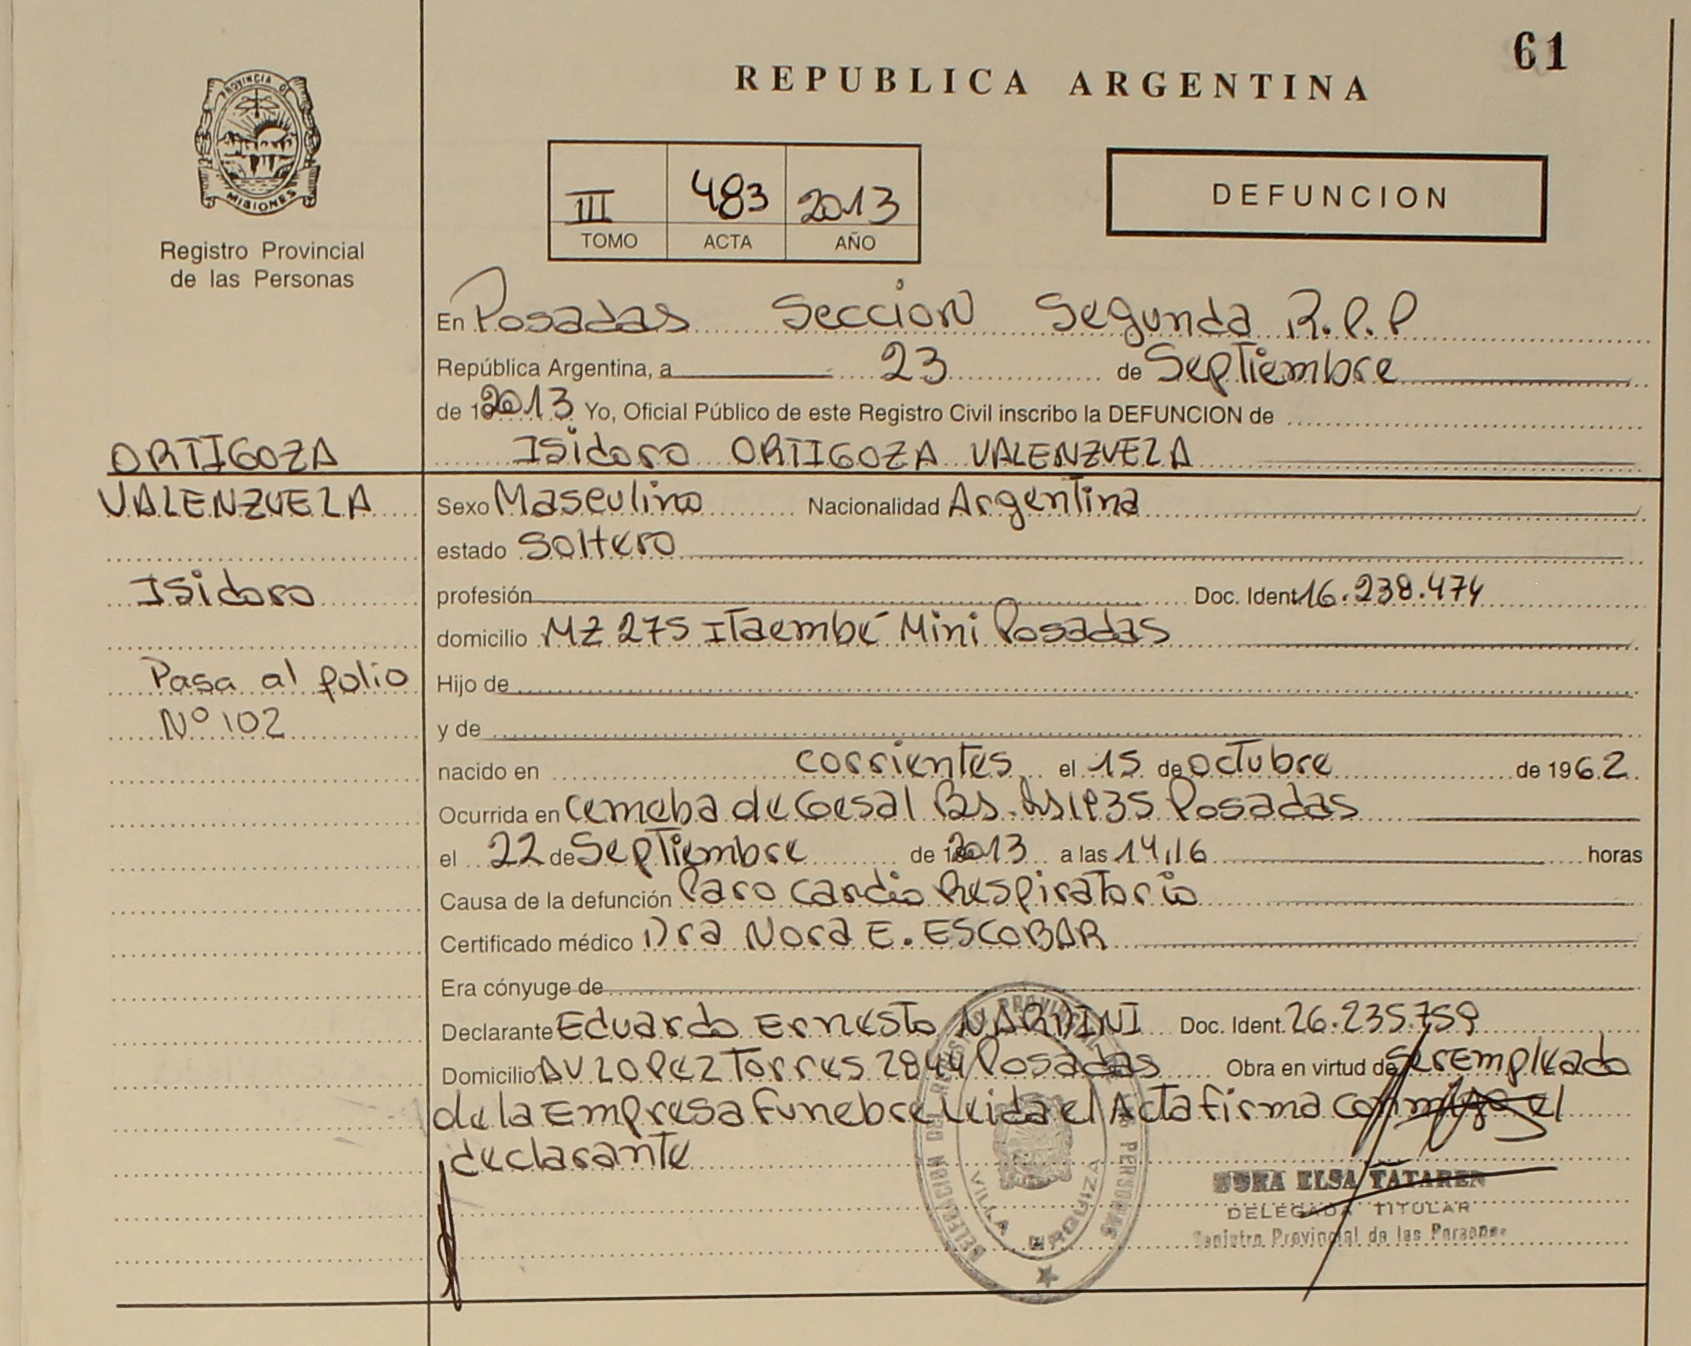 61
REPUBLICA ARGENTINA
PROVINCIA DE
MISIONES
Registro Provincial
de las Personas
III 483 2013
TOMO ACTA AÑO
DEFUNCION
En Posadas Seccion Segunda R.P.P
República Argentina, a 23 de Septiembre
de 2013 Yo, Oficial Público de este Registro Civil inscribo la DEFUNCION de
Isidoro ORTIGOZA VALENZUELA
ORTIGOZA
VALENZUELA
Isidoro
Pasa al folio
Nº 102
Sexo Masculino Nacionalidad Argentina
estado Soltero
profesión Doc. Ident. 16.238.474
domicilio MZ 275 Itaembé Mini Posadas
Hijo de
y de
nacido en corrientes el 15 de octubre de 1962
Ocurrida en Bs. As 1935 Posadas
el 22 de Septiembre de 2013 a las 14,16 horas
Causa de la defunción Paro Cardio Respiratorio
Certificado médico Dra Nora E. ESCOBAR
Era cónyuge de
Declarante Eduardo Ernesto NARDINI Doc. Ident. 26.235.759
Domicilio AV LOPEZ Torres 2844 Posadas Obra en virtud de ser empleado
de la Empresa Funebre leida el Acta firma conmigo el
declarante
DELEGACION DEL REGISTRO PROVINCIAL DE LAS PERSONAS
VILLA URQUIZA
ELSA TATAREN
DELEGADA TITULAR
Registro Provincial de las Personas